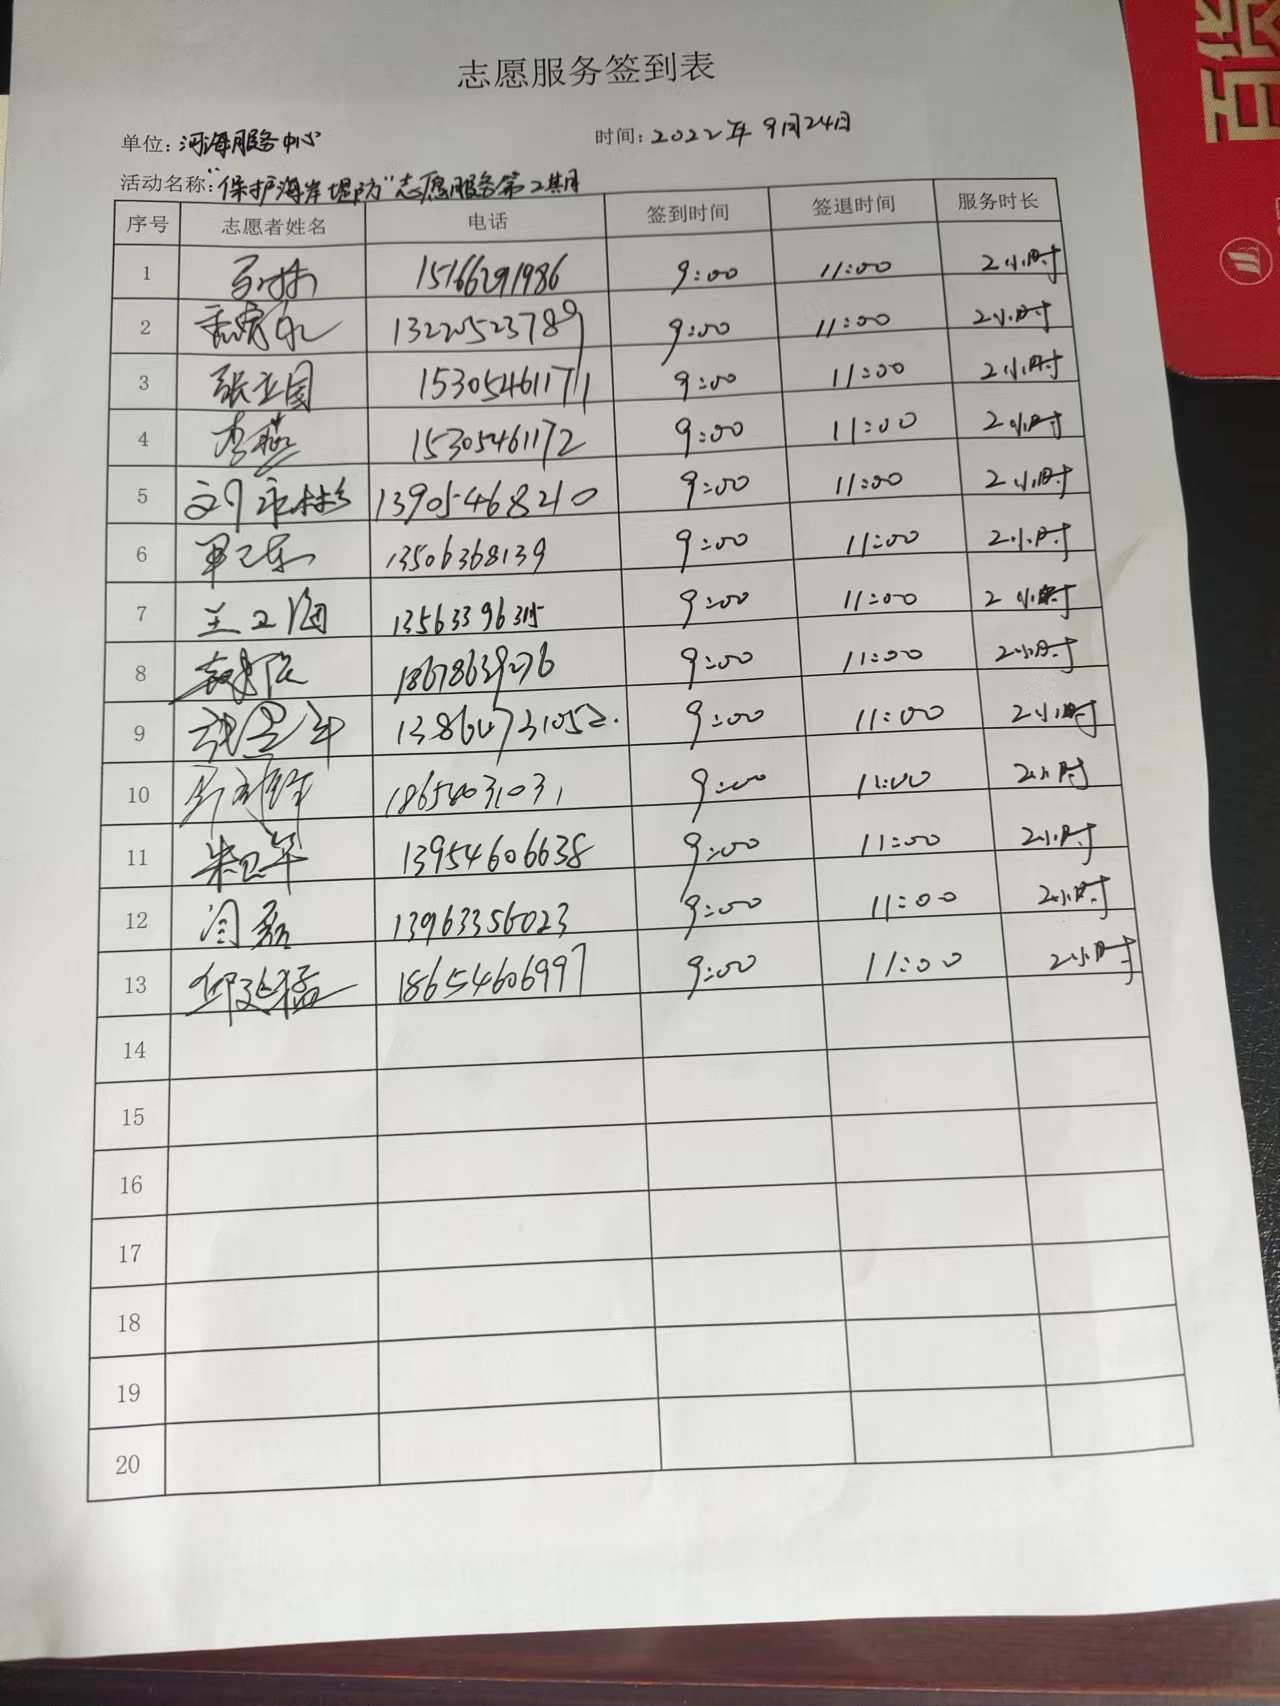 志愿服务签到表
单位：河海服务中心 时间：2022年9月24日
活动名称："保护海岸堤防"志愿服务第2期
序号 志愿者姓名 电话 签到时间 签退时间 服务时长
1 15166291986 9:00 11:00 2小时
2 13220523789 9:00 11:00 2小时
3 张立国 15305461171 9:00 11:00 2小时
4 李燕 15305461172 9:00 11:00 2小时
5 刘永彬 13905468210 9:00 11:00 2小时
6 13506368139 9:00 11:00 2小时
7 王卫海 9:00 11:00 2小时
8 18678639276 9:00 11:00 2小时
9 13864731052 9:00 11:00 2小时
10 18654031031 9:00 11:00 2小时
11 朱卫军 13954606638 9:00 11:00 2小时
12 闫磊 13963356023 9:00 11:00 2小时
13 邱延猛 18654606997 9:00 11:00 2小时
14
15
16
17
18
19
20
百货